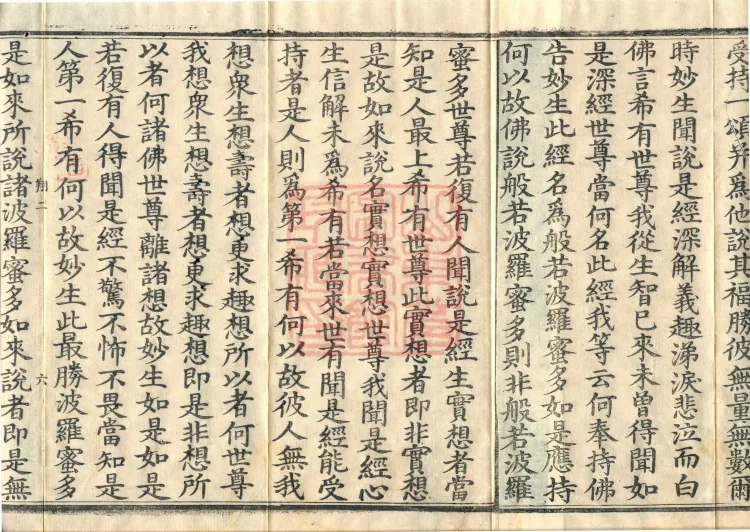 受持一頌并爲他說其福勝彼無量無數爾
時妙生聞說是經深解義趣涕淚悲泣而白
佛言希有世尊我從生智已來未曾得聞如
是深經世尊當何名此經我等云何奉持佛
告妙生此經名爲般若波羅蜜多如是應持
何以故佛說般若波羅蜜多則非般若波羅
蜜多世尊若復有人聞說是經生實想者當
知是人最上希有世尊此實想者即非實想
是故如來說名實想實想世尊我聞是經心
生信解未爲希有若當來世有聞是經能受
持者是人則爲第一希有何以故彼人無我
想衆生想壽者想更求趣想所以者何世尊
我想衆生想壽者想更求趣想即是非想所
以者何諸佛世尊離諸想故妙生如是如是
若復有人得聞是經不驚不怖不畏當知是
人第一希有何以故妙生此最勝波羅蜜多
翔二
六
是如來所說諸波羅蜜多如來說者即是無